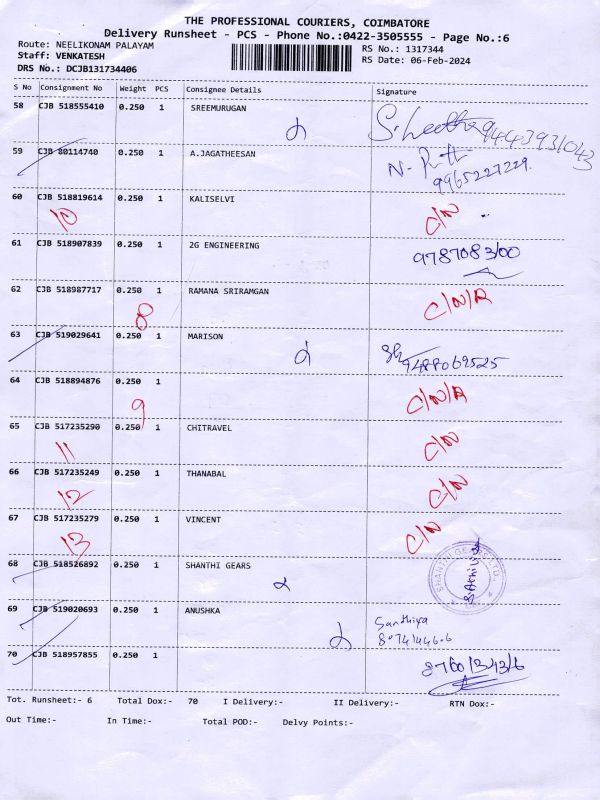 THE PROFESSIONAL COURIERS, COIMBATORE
Delivery Runsheet - PCS - Phone No.:0422-3505555 - Page No.:6
Route: NEELIKONAM PALAYAM
RS No.: 1317344
Staff: VENKATESH
RS Date.: 06-Feb-2024
DRS No.: DCJB131734406
S No Consignment No Weight PCS Consignee Details Signature
58 CJB 518555410 0.250 1 SREEMURUGAN 9443931043
59 CJB 80114740 0.250 1 A.JAGATHEESAN 9965227229
60 CJB 518819614 0.250 1 KALISELVI C/N
10
61 CJB 518907839 0.250 1 2G ENGINEERING 9787083100
62 CJB 518987717 0.250 1 RAMANA SRIRAMGAN C/N/R
8
63 CJB 519029641 0.250 1 MARISON 9488069525
64 CJB 518894876 0.250 1 C/N/A
9
65 CJB 517235290 0.250 1 CHITRAVEL C/N
11
66 CJB 517235249 0.250 1 THANABAL C/N
12
67 CJB 517235279 0.250 1 VINCENT C/N
13
68 CJB 518526892 0.250 1 SHANTHI GEARS SHANTHI GEARS LTD.
69 CJB 519020693 0.250 1 ANUSHKA Santhiya
70 CJB 518957855 0.250 1
Tot. Runsheet:- 6 Total Dox:- 70 I Delivery:- II Delivery:- RTN Dox:-
Out Time:- In Time:- Total POD:- Delvy Points:-